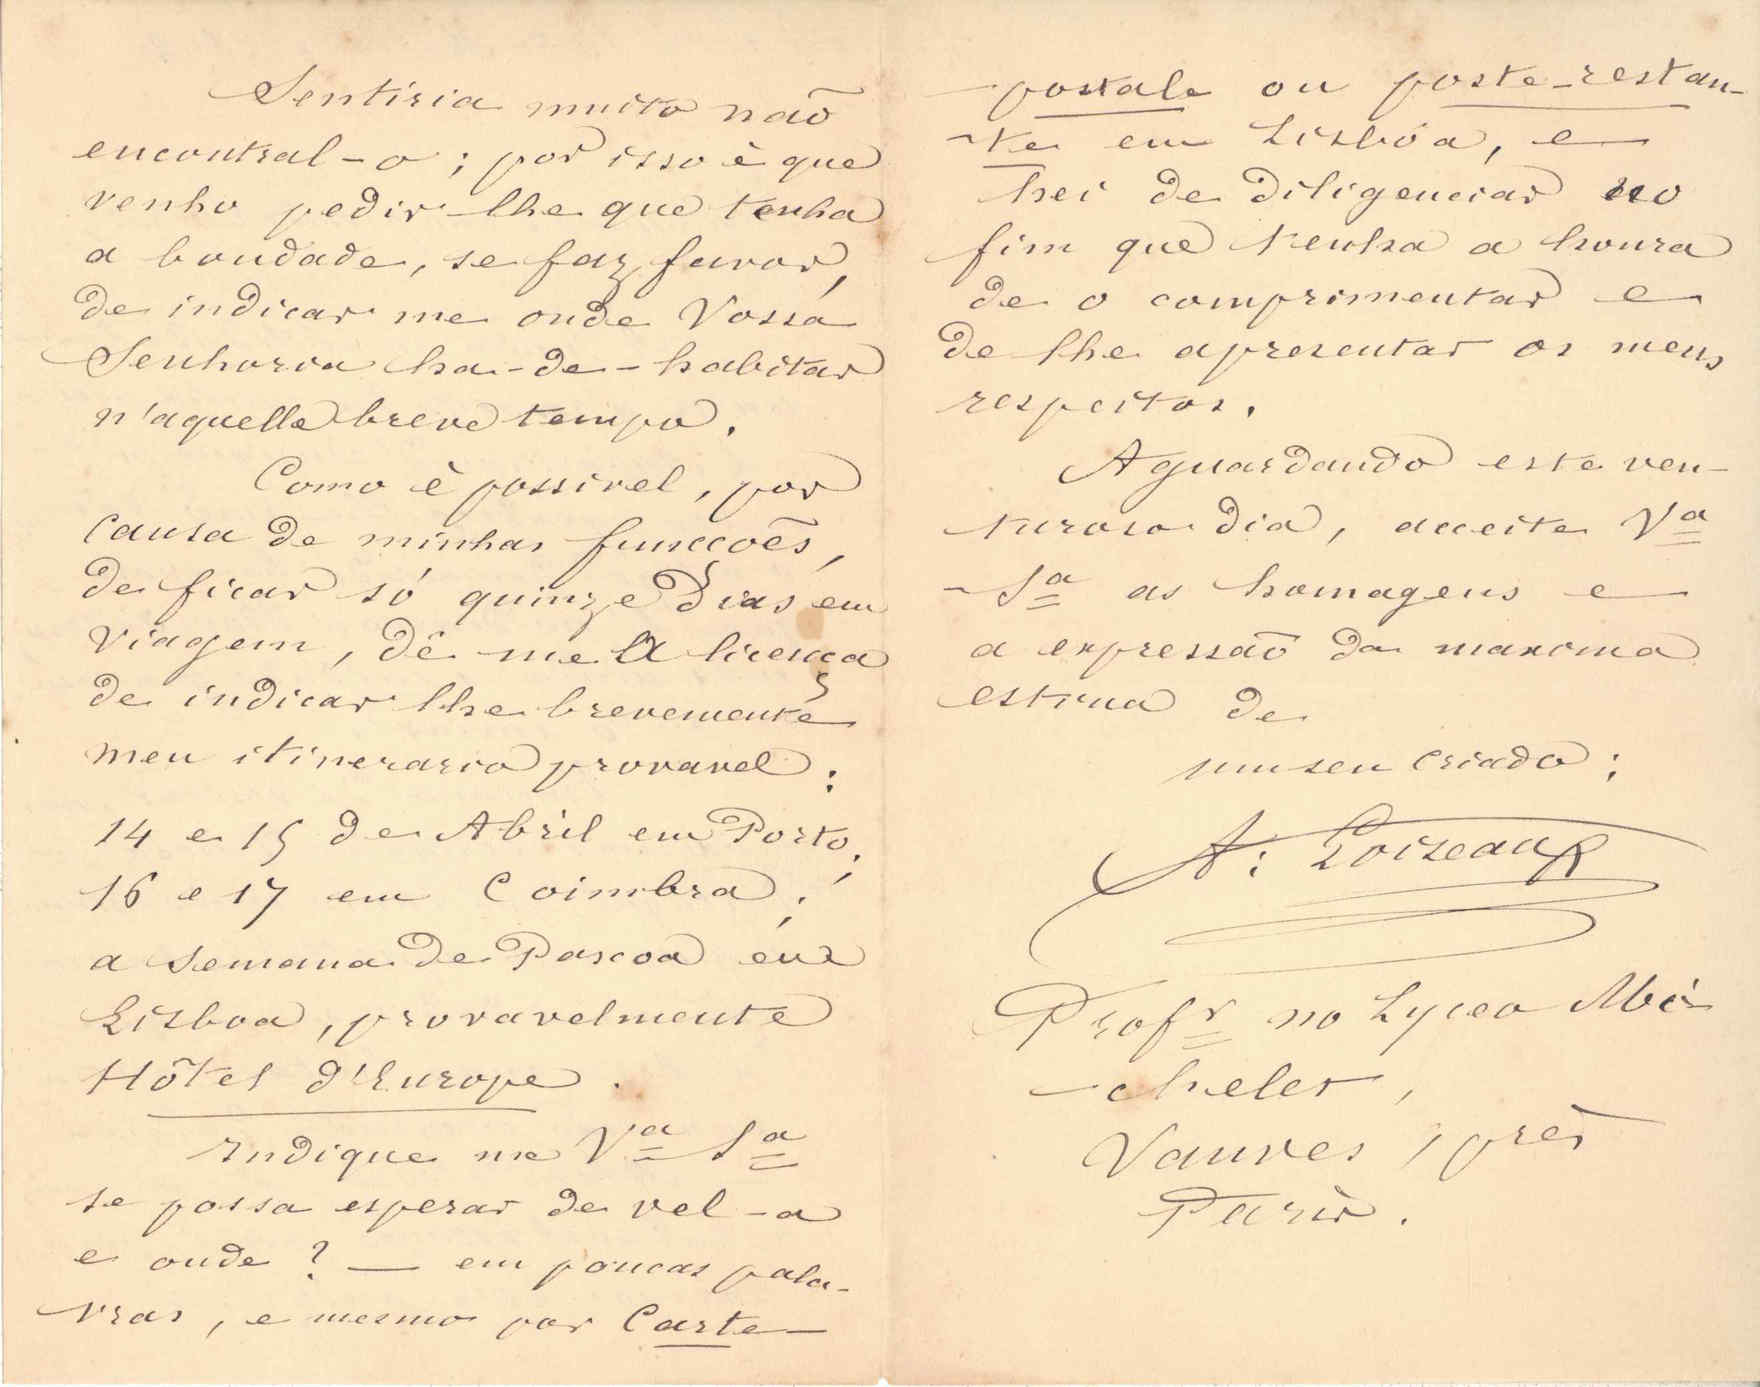 Sentiria muito não
encontral-o ; por isso è que
venho pedir-lhe que tenha
a bondade, se faz favor,
de indicar me onde Vossa
Senhoria ha-de-habitar
n'aquelle breve tempo.
Como è possivel, por
causa de minhas funcções,
de ficar só quinze dias em
viagem, dê me a licença
de indicar lhe brevemente
meu itinerario provavel :
14 e 15 de Abril em Porto;
16 e 17 em Coimbra ;
a semana de Pascoa em
Lisboa, provavelmente
Hôtel d'Europe .
Indique me Vª Sª
se possa esperar de vel-a
e onde ? — em poucas pala-
vras, e mesmo por Carte-
-postale ou poste-restan-
-te em Lisbóa, e
hei de diligenciar no
fim que tenha a honra
de o comprimentar e
de lhe apresentar os meus
respeitos.
Aguardando este ven-
turoso dia, acceite Vª
-Sª as homagens e
a expressão da maxima
estima de
um seu criado ;
A: Loizeau
Profr no Lyceo Mi-
-chelet,
Vanves, près
Paris.